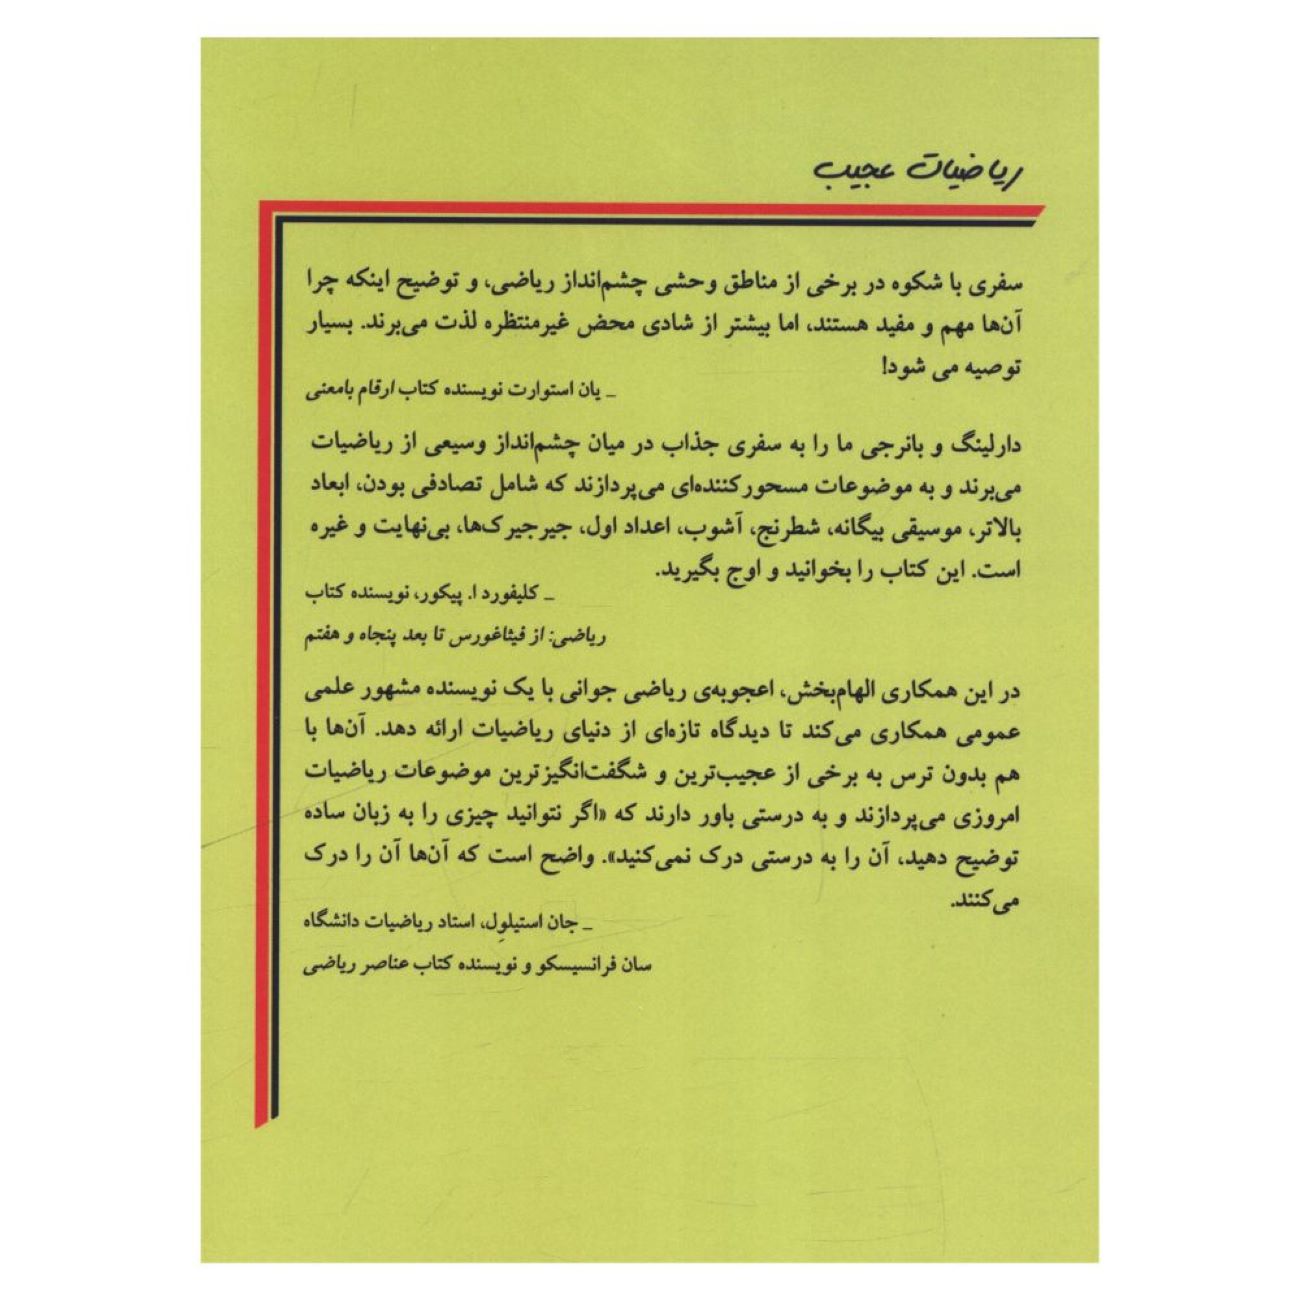 ریاضیات عجیب
سفری با شکوه در برخی از مناطق وحشی چشم‌انداز ریاضی، و توضیح اینکه چرا
آن‌ها مهم و مفید هستند، اما بیشتر از شادی محض غیرمنتظره لذت می‌برند. بسیار
توصیه می شود!
_ یان استوارت نویسنده کتاب ارقام بامعنی
دارلینگ و بانرجی ما را به سفری جذاب در میان چشم‌انداز وسیعی از ریاضیات
می‌برند و به موضوعات مسحورکننده‌ای می‌پردازند که شامل تصادفی بودن، ابعاد
بالاتر، موسیقی بیگانه، شطرنج، آشوب، اعداد اول، جیرجیرک‌ها، بی‌نهایت و غیره
است. این کتاب را بخوانید و اوج بگیرید.
_ کلیفورد ا. پیکور، نویسنده کتاب
ریاضی: از فیثاغورس تا بعد پنجاه و هفتم
در این همکاری الهام‌بخش، اعجوبه‌ی ریاضی جوانی با یک نویسنده مشهور علمی
عمومی همکاری می‌کند تا دیدگاه تازه‌ای از دنیای ریاضیات ارائه دهد. آن‌ها با
هم بدون ترس به برخی از عجیب‌ترین و شگفت‌انگیزترین موضوعات ریاضیات
امروزی می‌پردازند و به درستی باور دارند که «اگر نتوانید چیزی را به زبان ساده
توضیح دهید، آن را به درستی درک نمی‌کنید». واضح است که آن‌ها آن را درک
می‌کنند.
_ جان استیلوِل، استاد ریاضیات دانشگاه
سان فرانسیسکو و نویسنده کتاب عناصر ریاضی